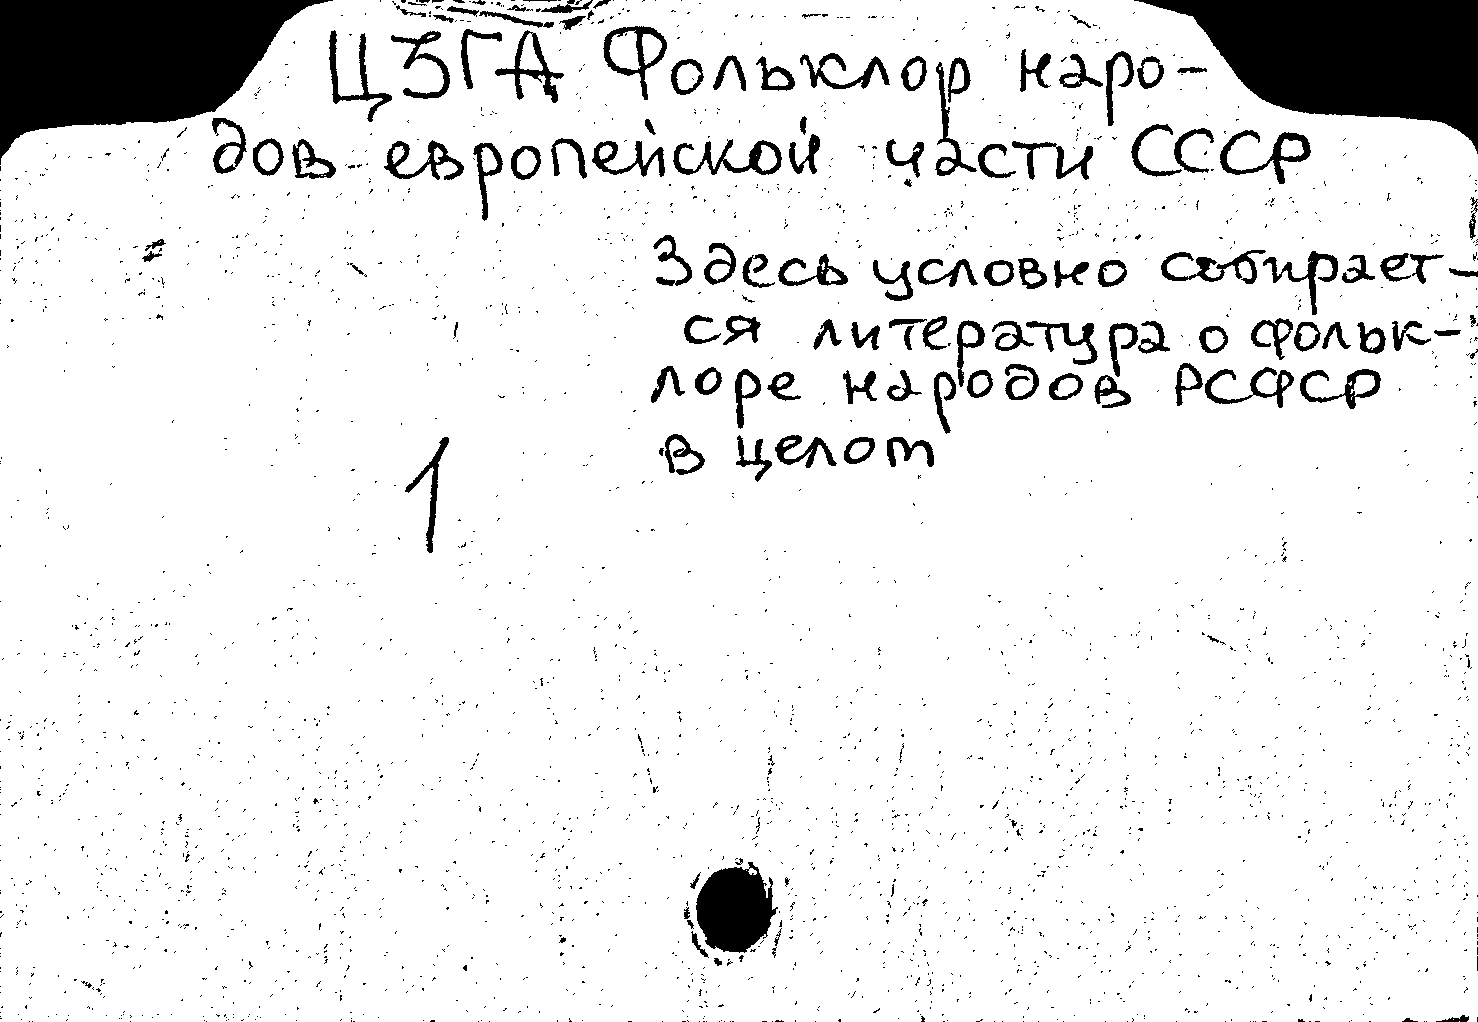 ЦЗГА Фольклор наро-
дов европейской части СССР
Здесь условно собирает-
ся литература о фольк-
лоре народов РСФСР
в целом
1